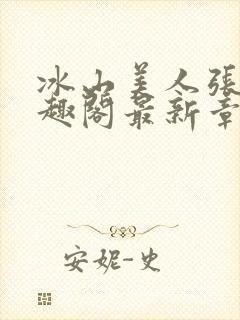 冰山美人張
趣閣最新章
安妮-史